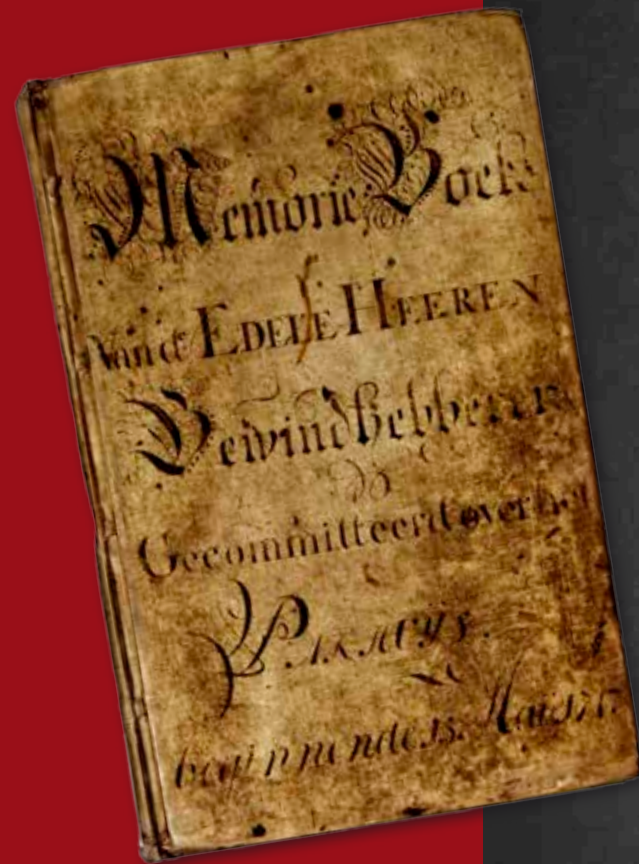 Memorie Boek
Van de EDELE HEEREN
Bewindhebberen
Gecommitteerd over het
PAKHUYS.
beginnende 13. Maii